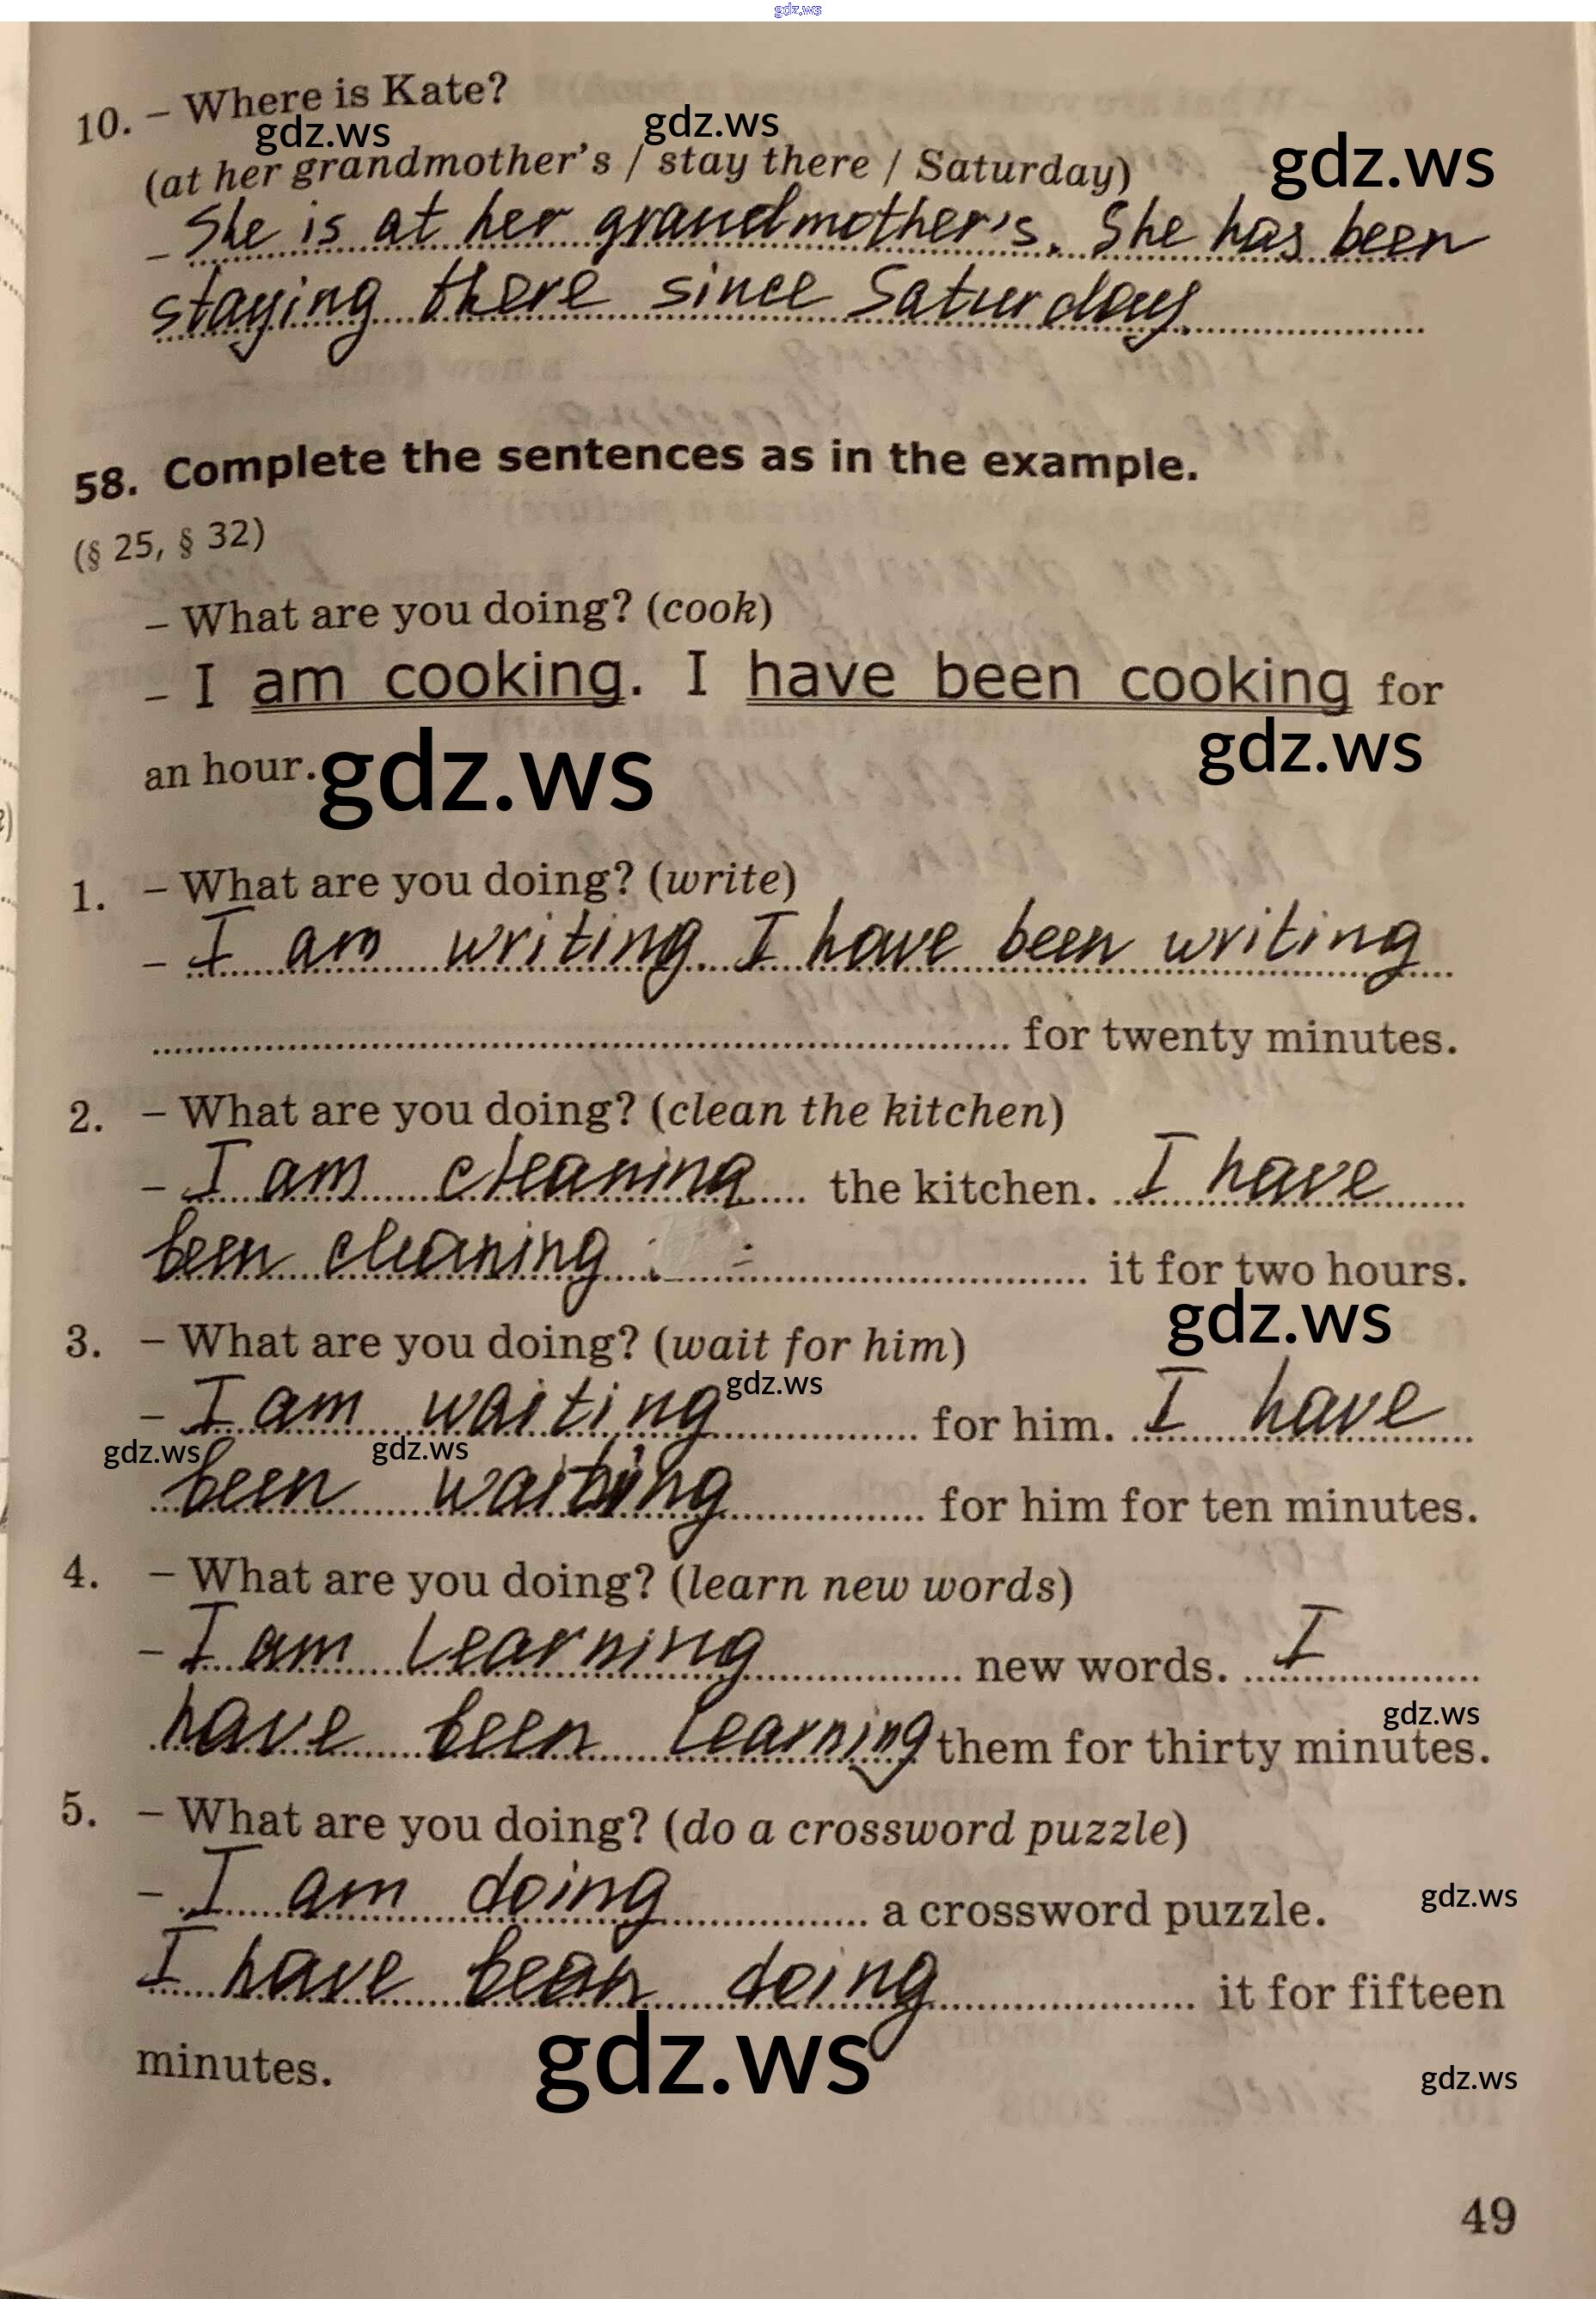 gdz.ws
10. – Where is Kate?
gdz.ws gdz.ws gdz.ws
(at her grandmother's / stay there / Saturday)
– She is at her grandmother's. She has been
staying there since Saturday.
58. Complete the sentences as in the example.
(§ 25, § 32)
– What are you doing? (cook)
– I am cooking. I have been cooking for
an hour. gdz.ws gdz.ws
1. – What are you doing? (write)
– I am writing. I have been writing
for twenty minutes.
2. – What are you doing? (clean the kitchen)
– I am cleaning the kitchen. I have
been cleaning it for two hours.
gdz.ws
3. – What are you doing? (wait for him)
gdz.ws
– I am waiting for him. I have
gdz.ws gdz.ws
been waiting for him for ten minutes.
4. – What are you doing? (learn new words)
– I am learning new words. I
gdz.ws
have been learning them for thirty minutes.
5. – What are you doing? (do a crossword puzzle)
– I am doing a crossword puzzle. gdz.ws
I have been doing it for fifteen
minutes. gdz.ws gdz.ws
49